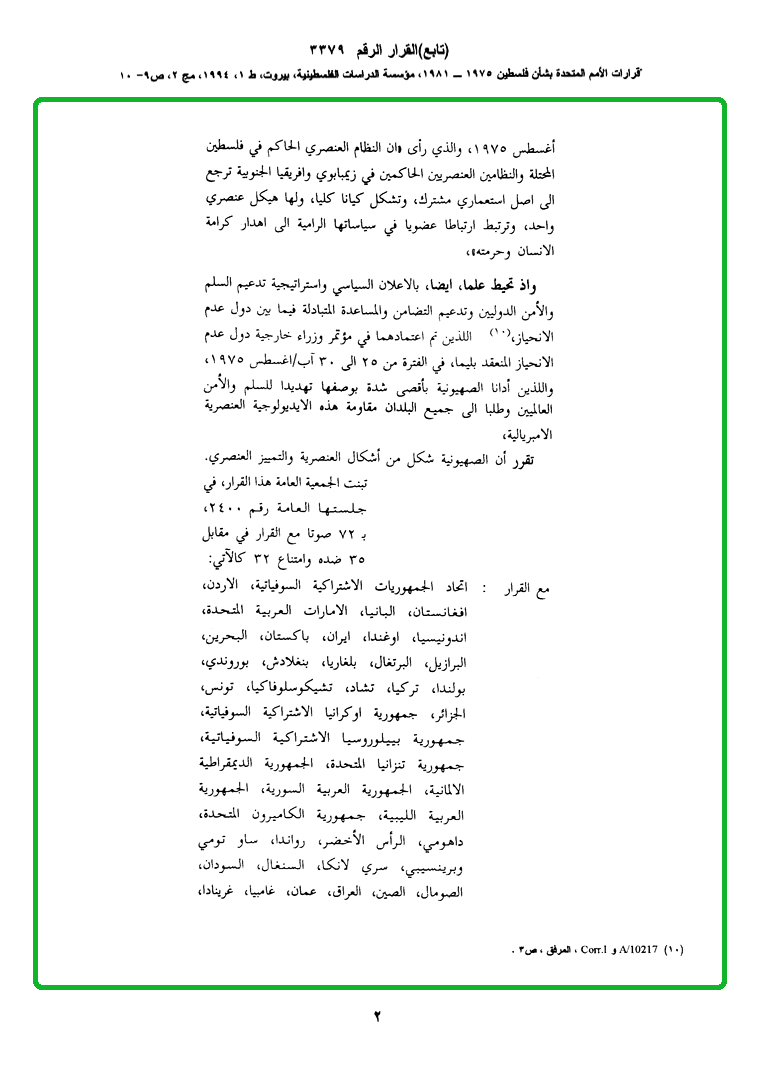 (تابع)القرار الرقم ٣٣٧٩
"قرارات الأمم المتحدة بشأن فلسطين ١٩٧٥ ــ ١٩٨١، مؤسسة الدراسات الفلسطينية، بيروت، ط ١، ١٩٩٤، مج ٢، ص٩- ١٠
أغسطس ١٩٧٥، والذي رأى «ان النظام العنصري الحاكم في فلسطين
المحتلة والنظامين العنصريين الحاكمين في زيمبابوي وافريقيا الجنوبية ترجع
الى اصل استعماري مشترك، وتشكل كيانا كليا، ولها هيكل عنصري
واحد، وترتبط ارتباطا عضويا في سياساتها الرامية الى اهدار كرامة
الانسان وحرمته»،
واذ تحيط علما، ايضا، بالاعلان السياسي واستراتيجية تدعيم السلم
والأمن الدوليين وتدعيم التضامن والمساعدة المتبادلة فيما بين دول عدم
الانحياز،(١٠) اللذين تم اعتمادهما في مؤتمر وزراء خارجية دول عدم
الانحياز المنعقد بليما، في الفترة من ٢٥ الى ٣٠ آب/اغسطس ١٩٧٥،
واللذين أدانا الصهيونية بأقصى شدة بوصفها تهديدا للسلم والأمن
العالميين وطلبا الى جميع البلدان مقاومة هذه الايديولوجية العنصرية
الامبريالية،
تقرر أن الصهيونية شكل من أشكال العنصرية والتمييز العنصري.
تبنت الجمعية العامة هذا القرار، في
جلستها العامة رقم ٢٤٠٠،
بـ ٧٢ صوتا مع القرار في مقابل
٣٥ ضده وامتناع ٣٢ كالآتي:
مع القرار : اتحاد الجمهوريات الاشتراكية السوفياتية، الاردن،
افغانستان، البانيا، الامارات العربية المتحدة،
اندونيسيا، اوغندا، ايران، باكستان، البحرين،
البرازيل، البرتغال، بلغاريا، بنغلادش، بوروندي،
بولندا، تركيا، تشاد، تشيكوسلوفاكيا، تونس،
الجزائر، جمهورية اوكرانيا الاشتراكية السوفياتية،
جمهورية بييلوروسيا الاشتراكية السوفياتية،
جمهورية تنزانيا المتحدة، الجمهورية الديمقراطية
الالمانية، الجمهورية العربية السورية، الجمهورية
العربية الليبية، جمهورية الكاميرون المتحدة،
داهومي، الرأس الأخضر، رواندا، ساو تومي
وبرينسيبي، سري لانكا، السنغال، السودان،
الصومال، الصين، العراق، عمان، غامبيا، غرينادا،
(١٠) A/10217 و Corr.1 ، المرفق ، ص٣ .
٢